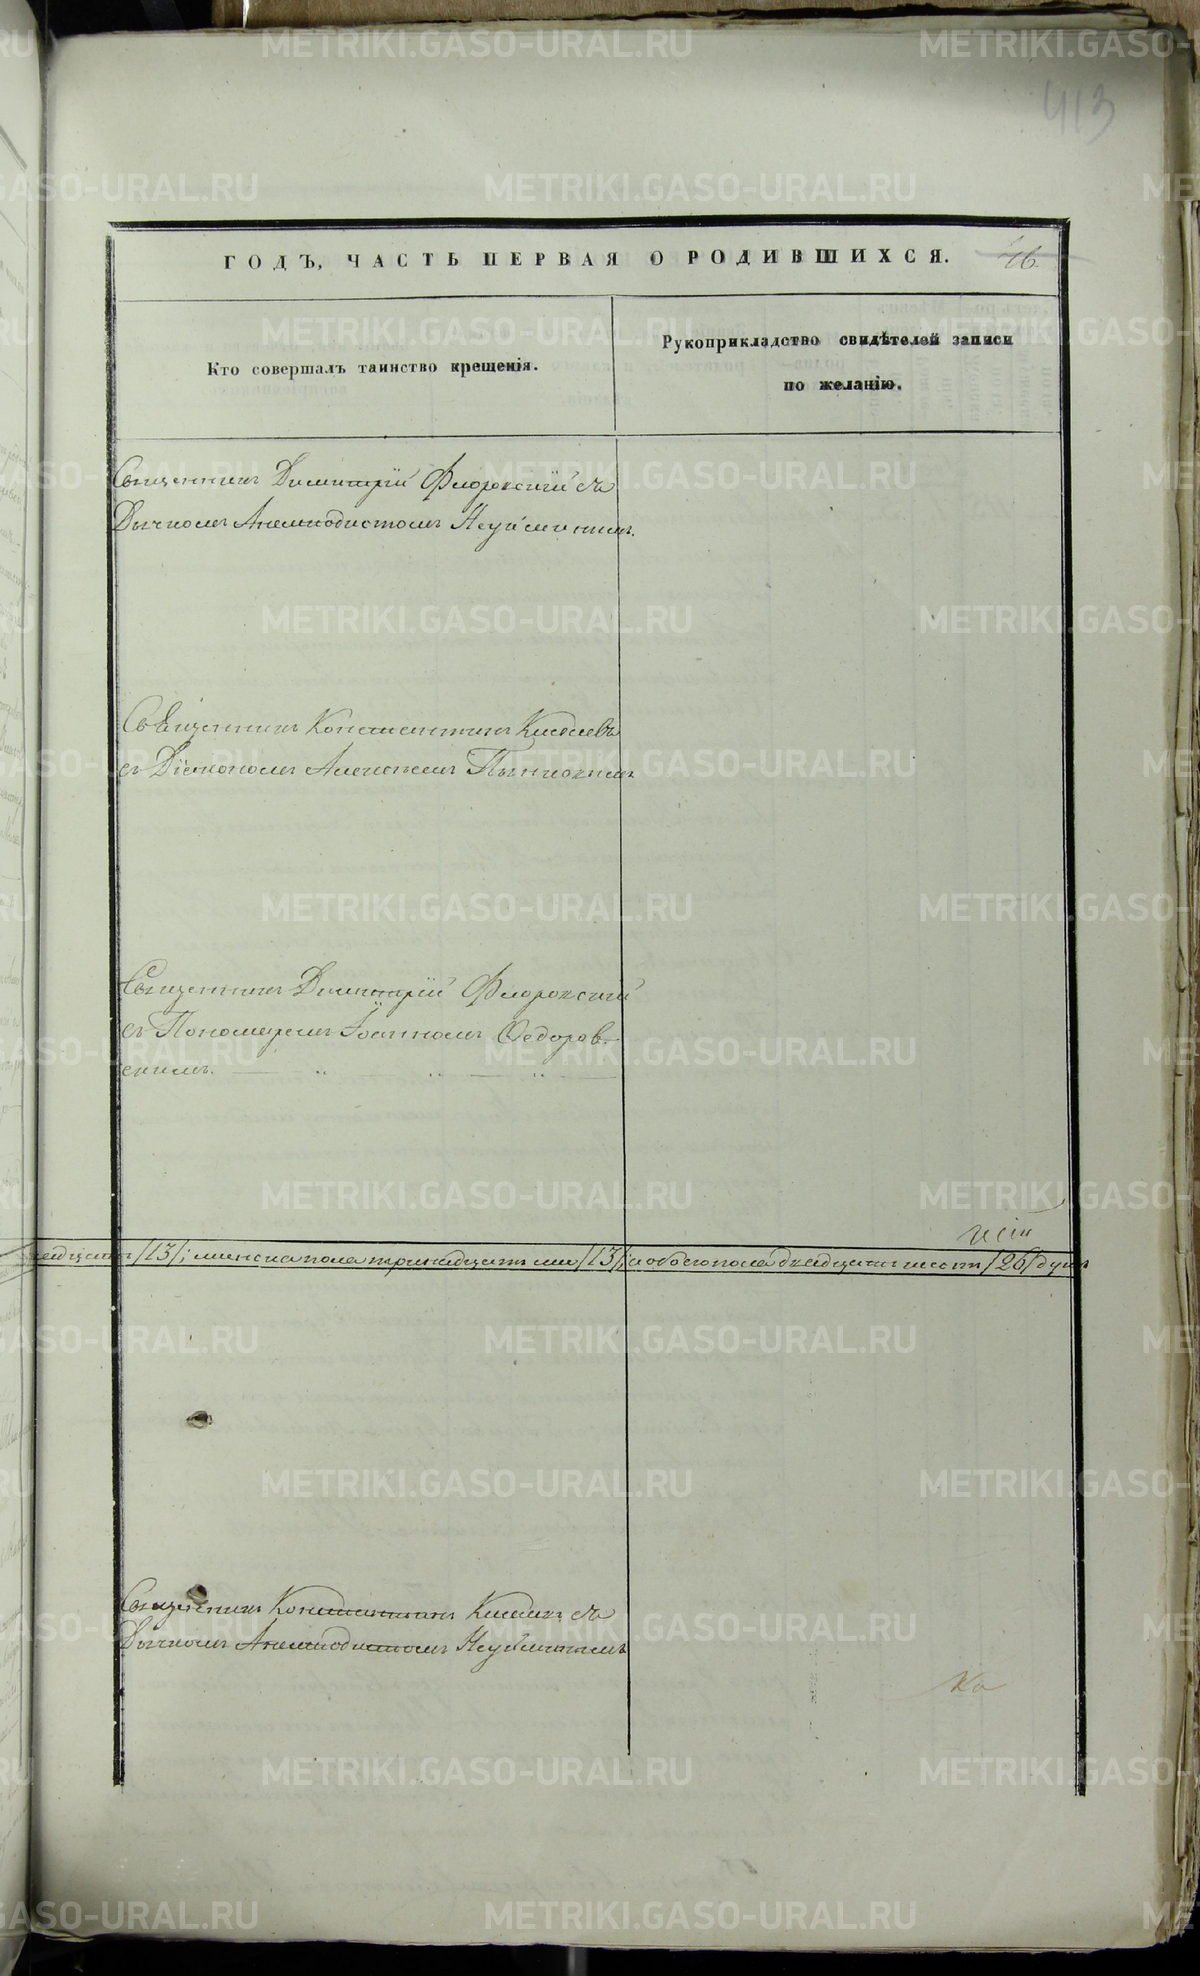 413
ГОДЪ, ЧАСТЬ ПЕРВАЯ О РОДИВШИХСЯ. 46.
Кто совершалъ таинство крещенія.
Рукоприкладство свидѣтелей записи
по желанію.
Священникъ Димитрій Флоровскій съ
Дьячкомъ Анемподистомъ Неуйминымъ.
Священникъ Константинъ Киселевъ
съ Діакономъ Алексѣемъ
Священникъ Димитрій Флоровскій
съ Пономаремъ Іоанномъ Ѳедоров-
скимъ.
/13/; женска пола тринадцать /13/; обоего пола двадцать шесть /26/ душъ
Священникъ Константинъ съ
Дьячкомъ Анемподистомъ Неуйминымъ
Ко
METRIKI.GASO-URAL.RU